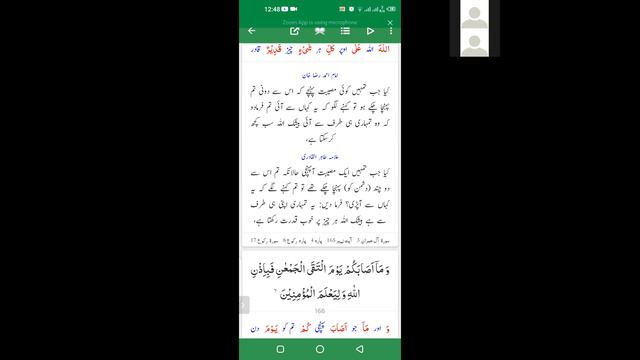 12:48
Zoom App is using microphone
اللّٰهَ اللہ عَلٰی اوپر كُلِّ ہر شَیْءٍ چیز قَدِیْرٌ قادر
امام احمد رضا خان
کیا جب تمہیں کوئی مصیبت پہنچے کہ اس سے دونی تم
پہنچا چکے ہو تو کہنے لگو کہ یہ کہاں سے آئی تم فرمادو
کہ وہ تمہاری ہی طرف سے آئی بیشک اللہ سب کچھ
کرسکتا ہے،
علامہ طاہر القادری
کیا جب تمہیں ایک مصیبت آپہنچی حالانکہ تم اس سے
دو چند (دشمن کو) پہنچا چکے تھے تو تم کہنے لگے کہ یہ
کہاں سے آپڑی؟ فرما دیں: یہ تمہاری اپنی ہی طرف
سے ہے بیشک اللہ ہر چیز پر خوب قدرت رکھتا ہے،
سورۃ آل عمران 3 آیت نمبر 165 پارہ 4 پارہ رکوع 8 سورۃ رکوع 17
وَ مَاۤ اَصَابَكُمْ یَوْمَ الْتَقَى الْجَمْعٰنِ فَبِاِذْنِ
اللّٰهِ وَ لِیَعْلَمَ الْمُؤْمِنِیْنَۙ
166
وَ اور مَاۤ جو اَصَابَ پہنچی كُمْ تم کو یَوْمَ دن